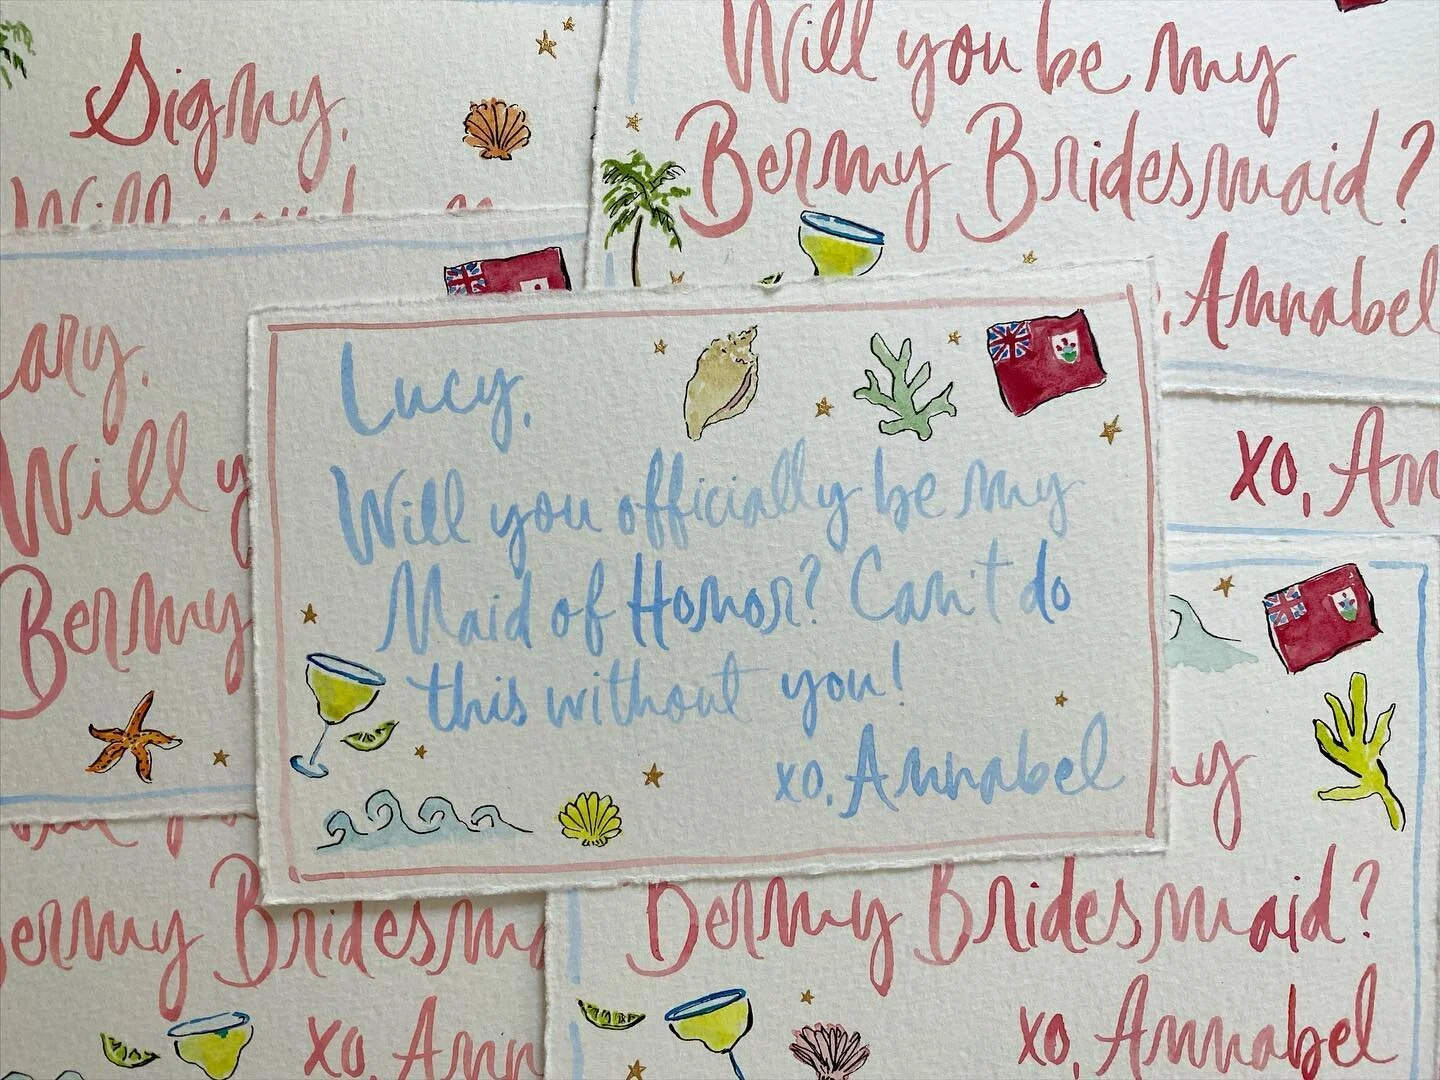 Signy,
Will you be my
Bermy Bridesmaid?
Annabel
ary,
Will y
Bermy
Lucy,
Will you officially be my
Maid of Honor? Can't do
this without you!
xo, Annabel
xo, Ann
my
ermy Bridesma
xo, Ann
Bermy Bridesmaid?
xo, Annabel